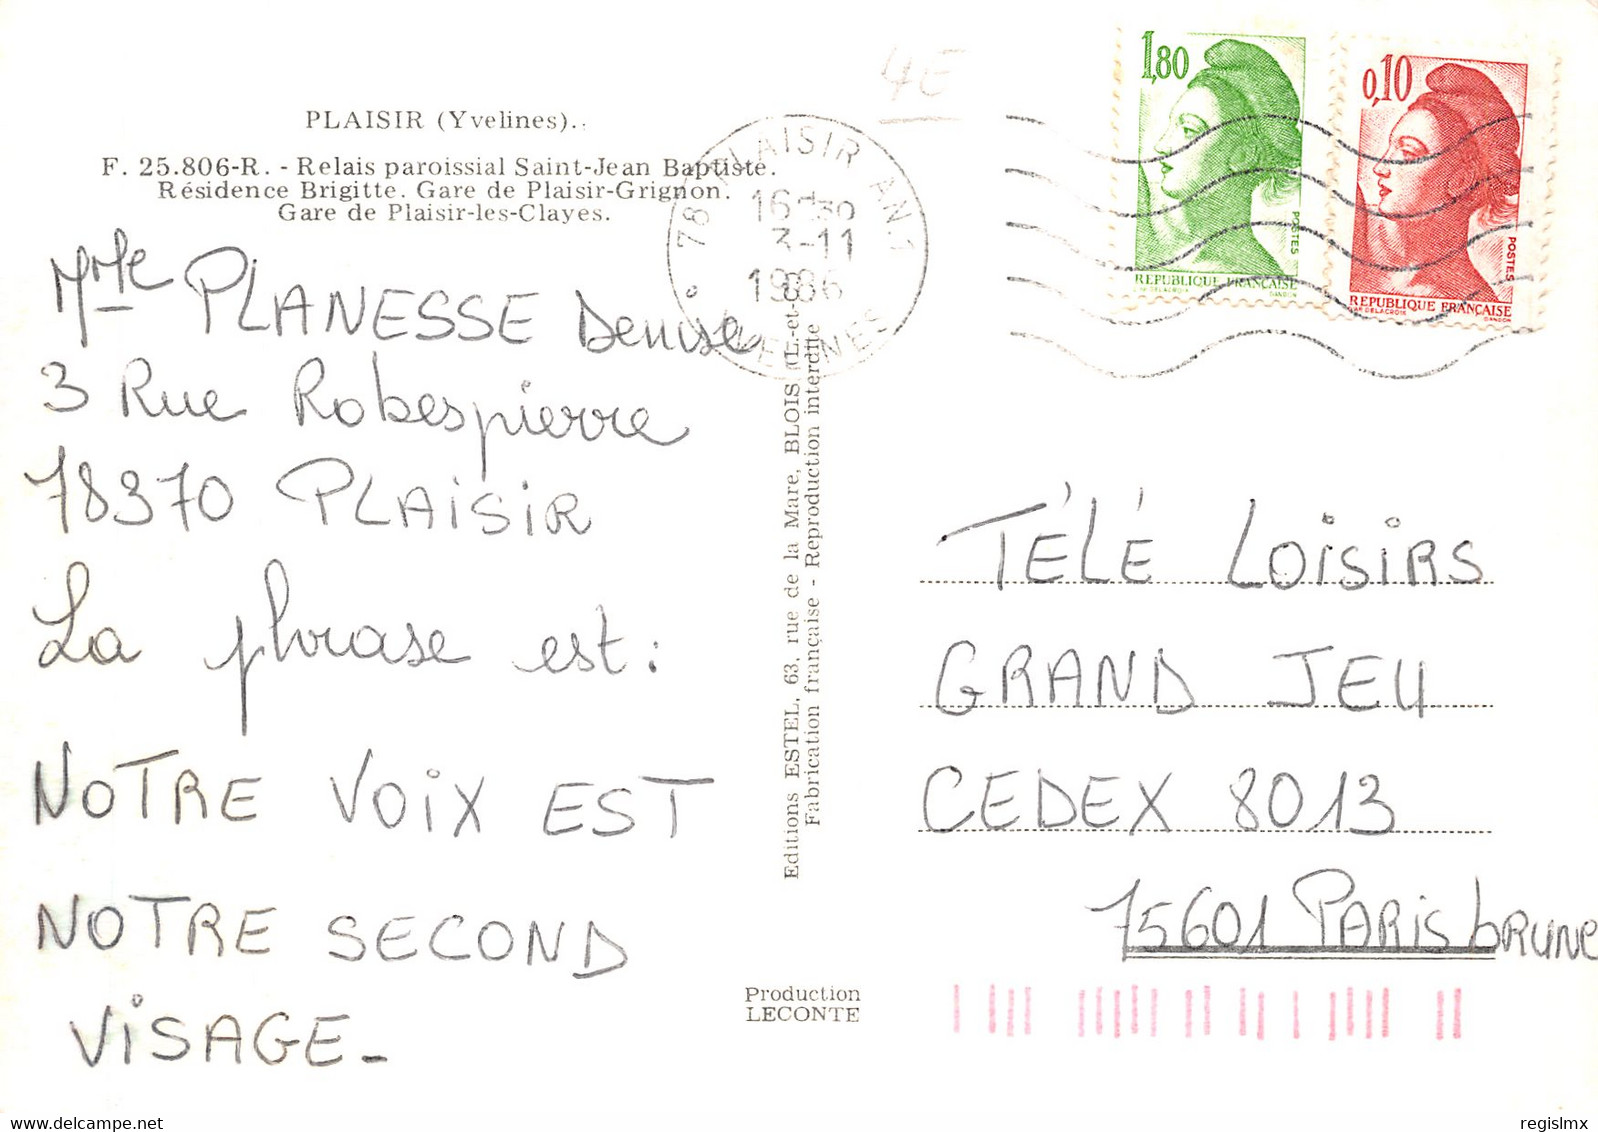 4E
PLAISIR (Yvelines).
F. 25.806-R. - Relais paroissial Saint-Jean Baptiste.
Résidence Brigitte. Gare de Plaisir-Grignon.
Gare de Plaisir-les-Clayes.
Mme PLANESSE Denise
3 Rue Robespierre
78370 PLAISIR
La phrase est:
NOTRE VOIX EST
NOTRE SECOND
VISAGE-
78 PLAISIR
16H30
3-11
1986
YVELINES
1,80
POSTES
REPUBLIQUE FRANÇAISE
GANDON
0,10
POSTES
REPUBLIQUE FRANÇAISE
GANDON
Editions ESTEL, 63, rue de la Mare, BLOIS
Fabrication française - Reproduction interdite
TÉLÉ LOISIRS
GRAND JEU
CEDEX 8013
75601 PARIS bRUNE
Production
LECONTE
regislmx